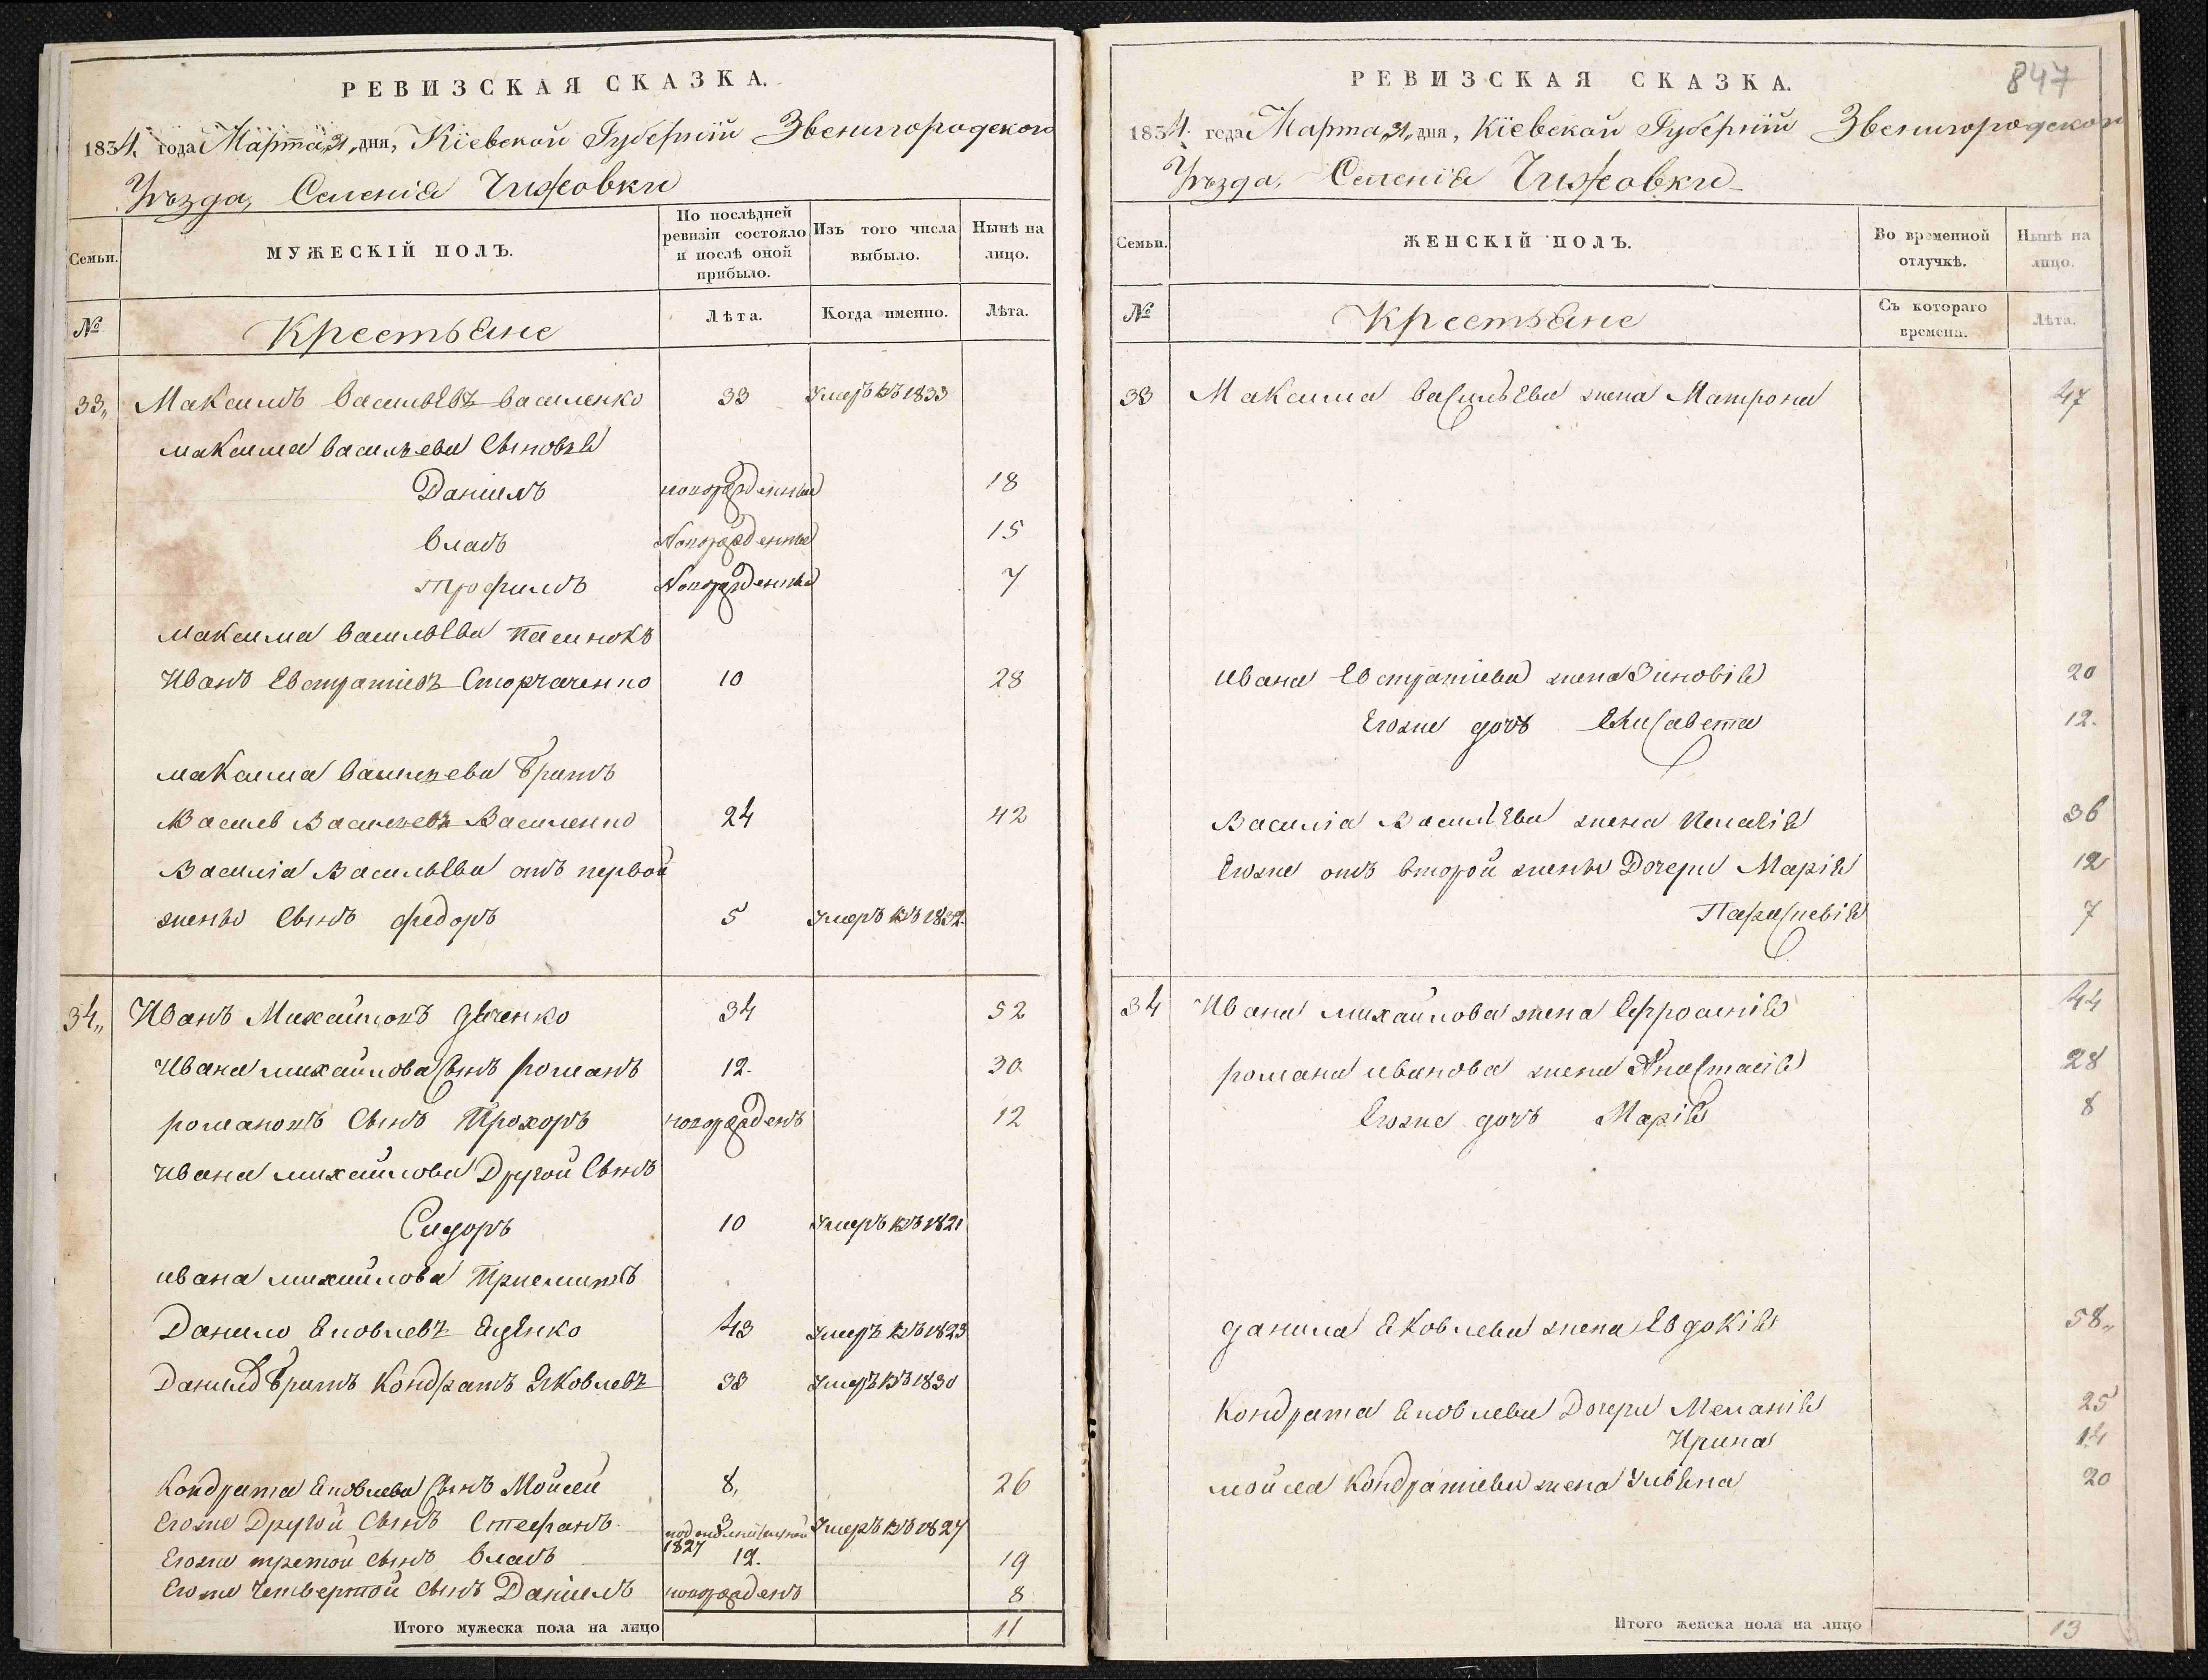 РЕВИЗСКАЯ СКАЗКА.
1834. года Марта 31, дня, Кіевской Губерніи Звенигородского
Уѣзда, Селенія Чижовки
Семьи.
МУЖЕСКІЙ ПОЛЪ.
По послѣдней ревизіи состояло и послѣ оной прибыло.
Изъ того числа выбыло.
Нынѣ на лицо.
№
Крестьяне
Лѣта.
Когда именно.
Лѣта.
33,, Максимъ Васильевъ Василенко 33 Умеръ въ 1833
Максима Васильева Сыновья
Даніилъ новорожденные 18
Власъ Новорожденные 15
Трофимъ Новорожденные 7
Максима Васильева пасинокъ
Иванъ Евстратіевъ 10 28
Максима Васильева братъ
Василь Васильевъ Василенко 24 42
Василіа Васильева отъ первой
жены Сынъ Федоръ 5 Умеръ въ 1832.
34,, Иванъ Михайловъ Дяченко 34 52
Ивана Михайлова Сынъ Романъ 12. 30
Романовъ Сынъ Прохоръ новорожденъ 12
Ивана Михайлова Другой Сынъ
Сидоръ 10 Умеръ въ 1821
Ивана Михайлова
Данило Яковлевъ Яценко 43 Умеръ въ 1823
Данила братъ Кондратъ Яковлевъ 38 Умеръ въ 1830
Кондрата Яковлева Сынъ Мойсей 8, 26
Егоже Другой Сынъ Стефанъ 3 Умеръ въ 1827
Егоже третой Сынъ Власъ 1827 12. 19
Егоже Четвертой Сынъ Даніилъ новорожденъ 8
Итого мужеска пола на лицо 11
847
РЕВИЗСКАЯ СКАЗКА.
1834. года Марта 31, дня, Кіевской Губерніи Звенигородской
Уѣзда, Селенія Чижовки
Семьи.
ЖЕНСКІЙ ПОЛЪ.
Во временной отлучкѣ.
Нынѣ на лицо.
№
Крестьяне
Съ котораго времени.
Лѣта.
33 Максима Васильева жена Матрона 47
Ивана Евстратіева жена Зиновія 20
Егоже дочь Елисавета 12.
Василіа Васильева жена 36
Егоже отъ второй жены Дочери Марія 12
Параскевія 7
34 Ивана Михайлова жена Ефросинія 44
Романа Иванова жена Анастасія 28
Егоже дочь Марія 8
Данила Яковлева жена Евдокія 58,,
Кондрата Яковлева Дочери Меланія 25
Ирина 14
Мойсея Кондратіева жена Уліяна 20
Итого женска пола на лицо 13